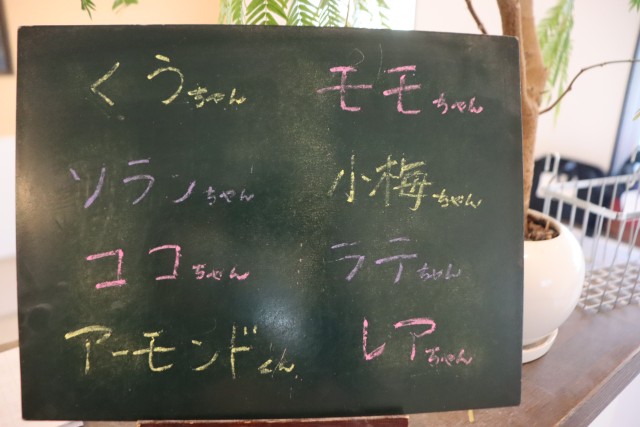 くうちゃん モモちゃん
ソランちゃん 小梅ちゃん
ココちゃん ラテちゃん
アーモンドくん レアちゃん